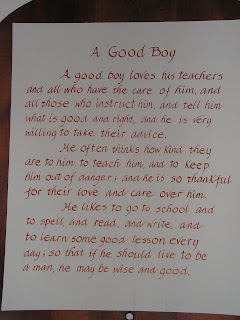 A Good Boy
A good boy loves his teachers
and all who have the care of him, and
all those who instruct him, and tell him
what is good and right, and he is very
willing to take their advice.
He often thinks how kind they
are to him, to teach him, and to keep
him out of danger; and he is so thankful
for their love and care over him.
He likes to go to school and
to spell, and read, and write, and
to learn some good lesson every
day; so that if he should live to be
a man, he may be wise and good.